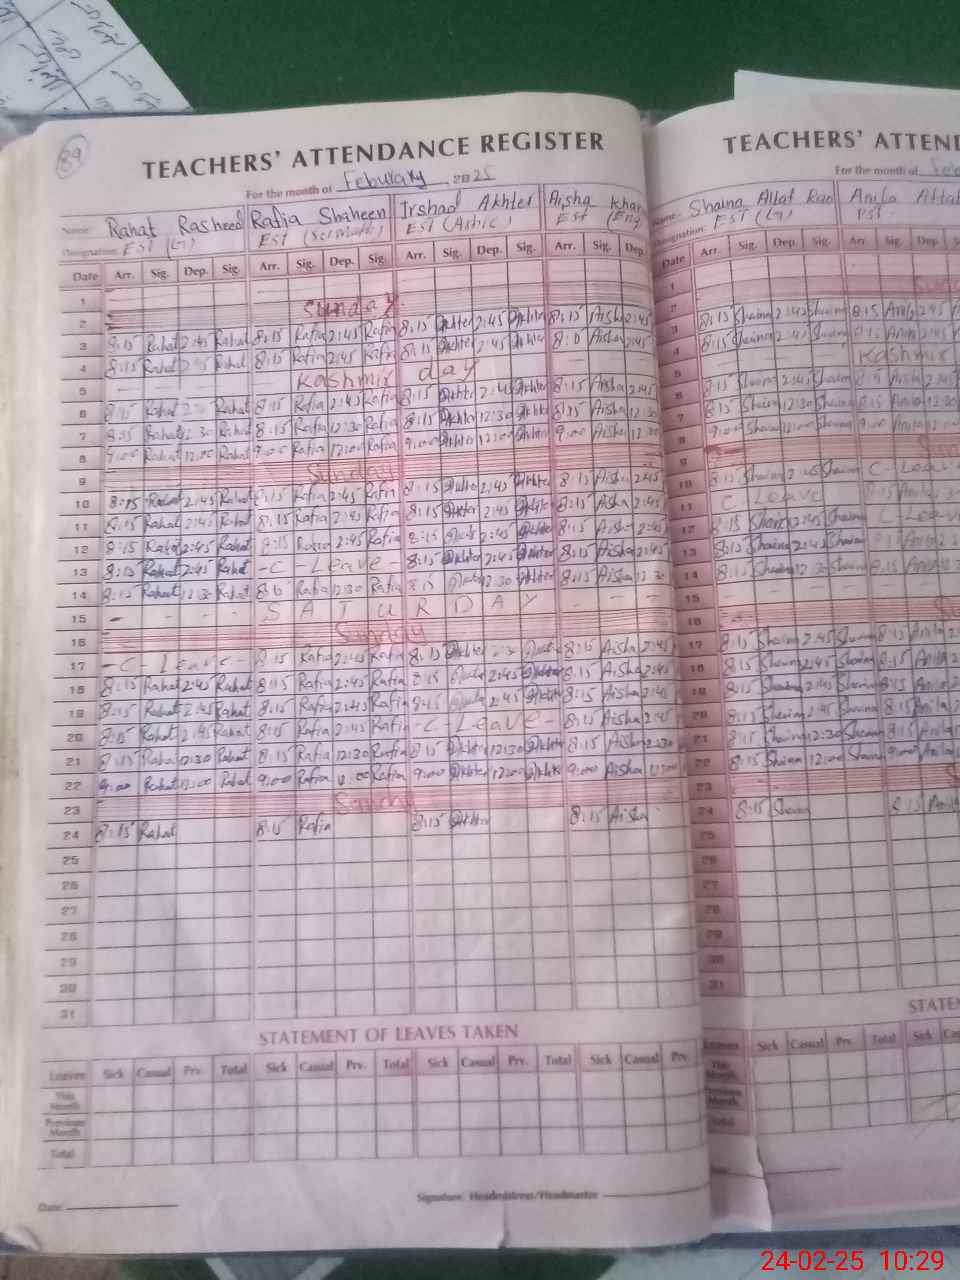 89
TEACHERS' ATTENDANCE REGISTER
For the month of Febuuary 2025
Name: Rahat Rasheed Rafia Shaheen Irshad Akhter Aisha Khan
Designation: EST (G) EST (Sci Math) EST (Arbic) EST (Eng)
Date Arr. Sig. Dep. Sig. Arr. Sig. Dep. Sig. Arr. Sig. Dep. Sig. Arr. Sig. Dep.
1
2 Sunday
3 8:15 Rahat 2:45 Rahat 8:15 Rafia 2:45 Rafia 8:15 Akhter 2:45 Akhter 8:15 Aisha 2:45
4 8:15 Rahat 2:45 Rahat 8:15 Rafia 2:45 Rafia 8:15 Akhter 2:45 Akhter 8:15 Aisha 2:45
5 Kashmir day
6 8:15 Rahat Rahat 8:15 Rafia 2:45 Rafia 8:15 Akhter 2:45 Akhter 8:15 Aisha 2:45
7 8:15 Rahat 12:30 Rahat 8:15 Rafia 12:30 Rafia 8:15 Akhter 12:30 Akhter 8:15 Aisha 12:30
8 9:00 Rahat 12:00 Rahat 9:00 Rafia 12:00 Rafia 9:00 Akhter 12:00 Akhter 9:00 Aisha 12:00
9 Sunday
10 8:15 Rahat 2:45 Rahat 8:15 Rafia 2:45 Rafia 8:15 Akhter 2:45 Akhter 8:15 Aisha 2:45
11 8:15 Rahat 2:45 Rahat 8:15 Rafia 2:45 Rafia 8:15 Akhter 2:45 Akhter 8:15 Aisha 2:45
12 8:15 Rahat 2:45 Rahat 8:15 Rafia 2:45 Rafia 8:15 Akhter 2:45 Akhter 8:15 Aisha 2:45
13 8:15 Rahat 2:45 Rahat - C - Leave - 8:15 Akhter 2:45 Akhter 8:15 Aisha 2:45
14 8:15 Rahat 12:30 Rahat 8:15 Rafia 12:30 Rafia 8:15 Akhter 12:30 Akhter 8:15 Aisha 12:30
15 - - - - S A T U R D A Y - - -
16 Sunday
17 - C - Leave - 8:15 Rafia 2:45 Rafia 8:15 Akhter Akhter 8:15 Aisha 2:45
18 8:15 Rahat 2:45 Rahat 8:15 Rafia 2:45 Rafia 8:15 Akhter 2:45 Akhter 8:15 Aisha 2:45
19 8:15 Rahat 2:45 Rahat 8:15 Rafia 2:45 Rafia 8:15 Akhter 2:45 Akhter 8:15 Aisha 2:45
20 8:15 Rahat 2:45 Rahat 8:15 Rafia 2:45 Rafia - C - Leave - 8:15 Aisha 2:45
21 8:15 Rahat 12:30 Rahat 8:15 Rafia 12:30 Rafia 8:15 Akhter 12:30 Akhter 8:15 Aisha
22 9:00 Rahat 12:00 Rahat 9:00 Rafia 12:00 Rafia 9:00 Akhter 12:00 Akhter 9:00 Aisha 12:00
23 Sunday
24 8:15 Rahat 8:15 Rafia 8:15 Akhter 8:15 Aisha
25
26
27
28
29
30
31
STATEMENT OF LEAVES TAKEN
Leaves Sick Casual Prv. Total Sick Casual Prv. Total Sick Casual Prv. Total Sick Casual Prv.
This Month
Previous Month
Total
Date:
Signature: Headmistress/Headmaster
TEACHERS' ATTEND
For the month of Feb
Name: Shaina Altaf Rao Anila Altaf
Designation: EST (G) PST
Date Arr. Sig. Dep. Sig. Arr. Sig. Dep.
1
2
3 8:15 Shaina 2:45 Shaina 8:15 Anila 2:45
4 8:15 Shaina 2:45 Shaina 8:15 Anila
5 Kashmir
6 8:15 Shaina 2:45 Shaina 8:15 Anila 2:45
7 8:15 Shaina 12:30 Shaina 8:15 Anila 12:30
8 9:00 Shaina 12:00 Shaina 9:00 Anila 12:00
9
10 8:15 Shaina 2:45 Shaina C - Leave
11 C - Leave 8:15 Anila
12 8:15 Shaina 2:45 Shaina C Leave
13 8:15 Shaina 2:45 Shaina 8:15 Anila
14 8:15 Shaina 12:30 Shaina 8:15 Anila
15
16
17 8:15 Shaina 2:45 Shaina 8:15 Anila 2
18 8:15 Shaina 2:45 Shaina 8:15 Anila 2
19 8:15 Shaina 2:45 Shaina 8:15 Anila 2
20 8:15 Shaina 2:45 Shaina 8:15 Anila
21 8:15 Shaina 12:30 Shaina 8:15 Anila
22 8:15 Shaina 12:00 Shaina 9:00 Anila
23
24 8:15 Shaina 8:15 Anila
25
26
27
28
29
30
31
STATEM
Leaves Sick Casual Prv. Total Sick Cas
This Month
Previous Month
Total
24-02-25 10:29